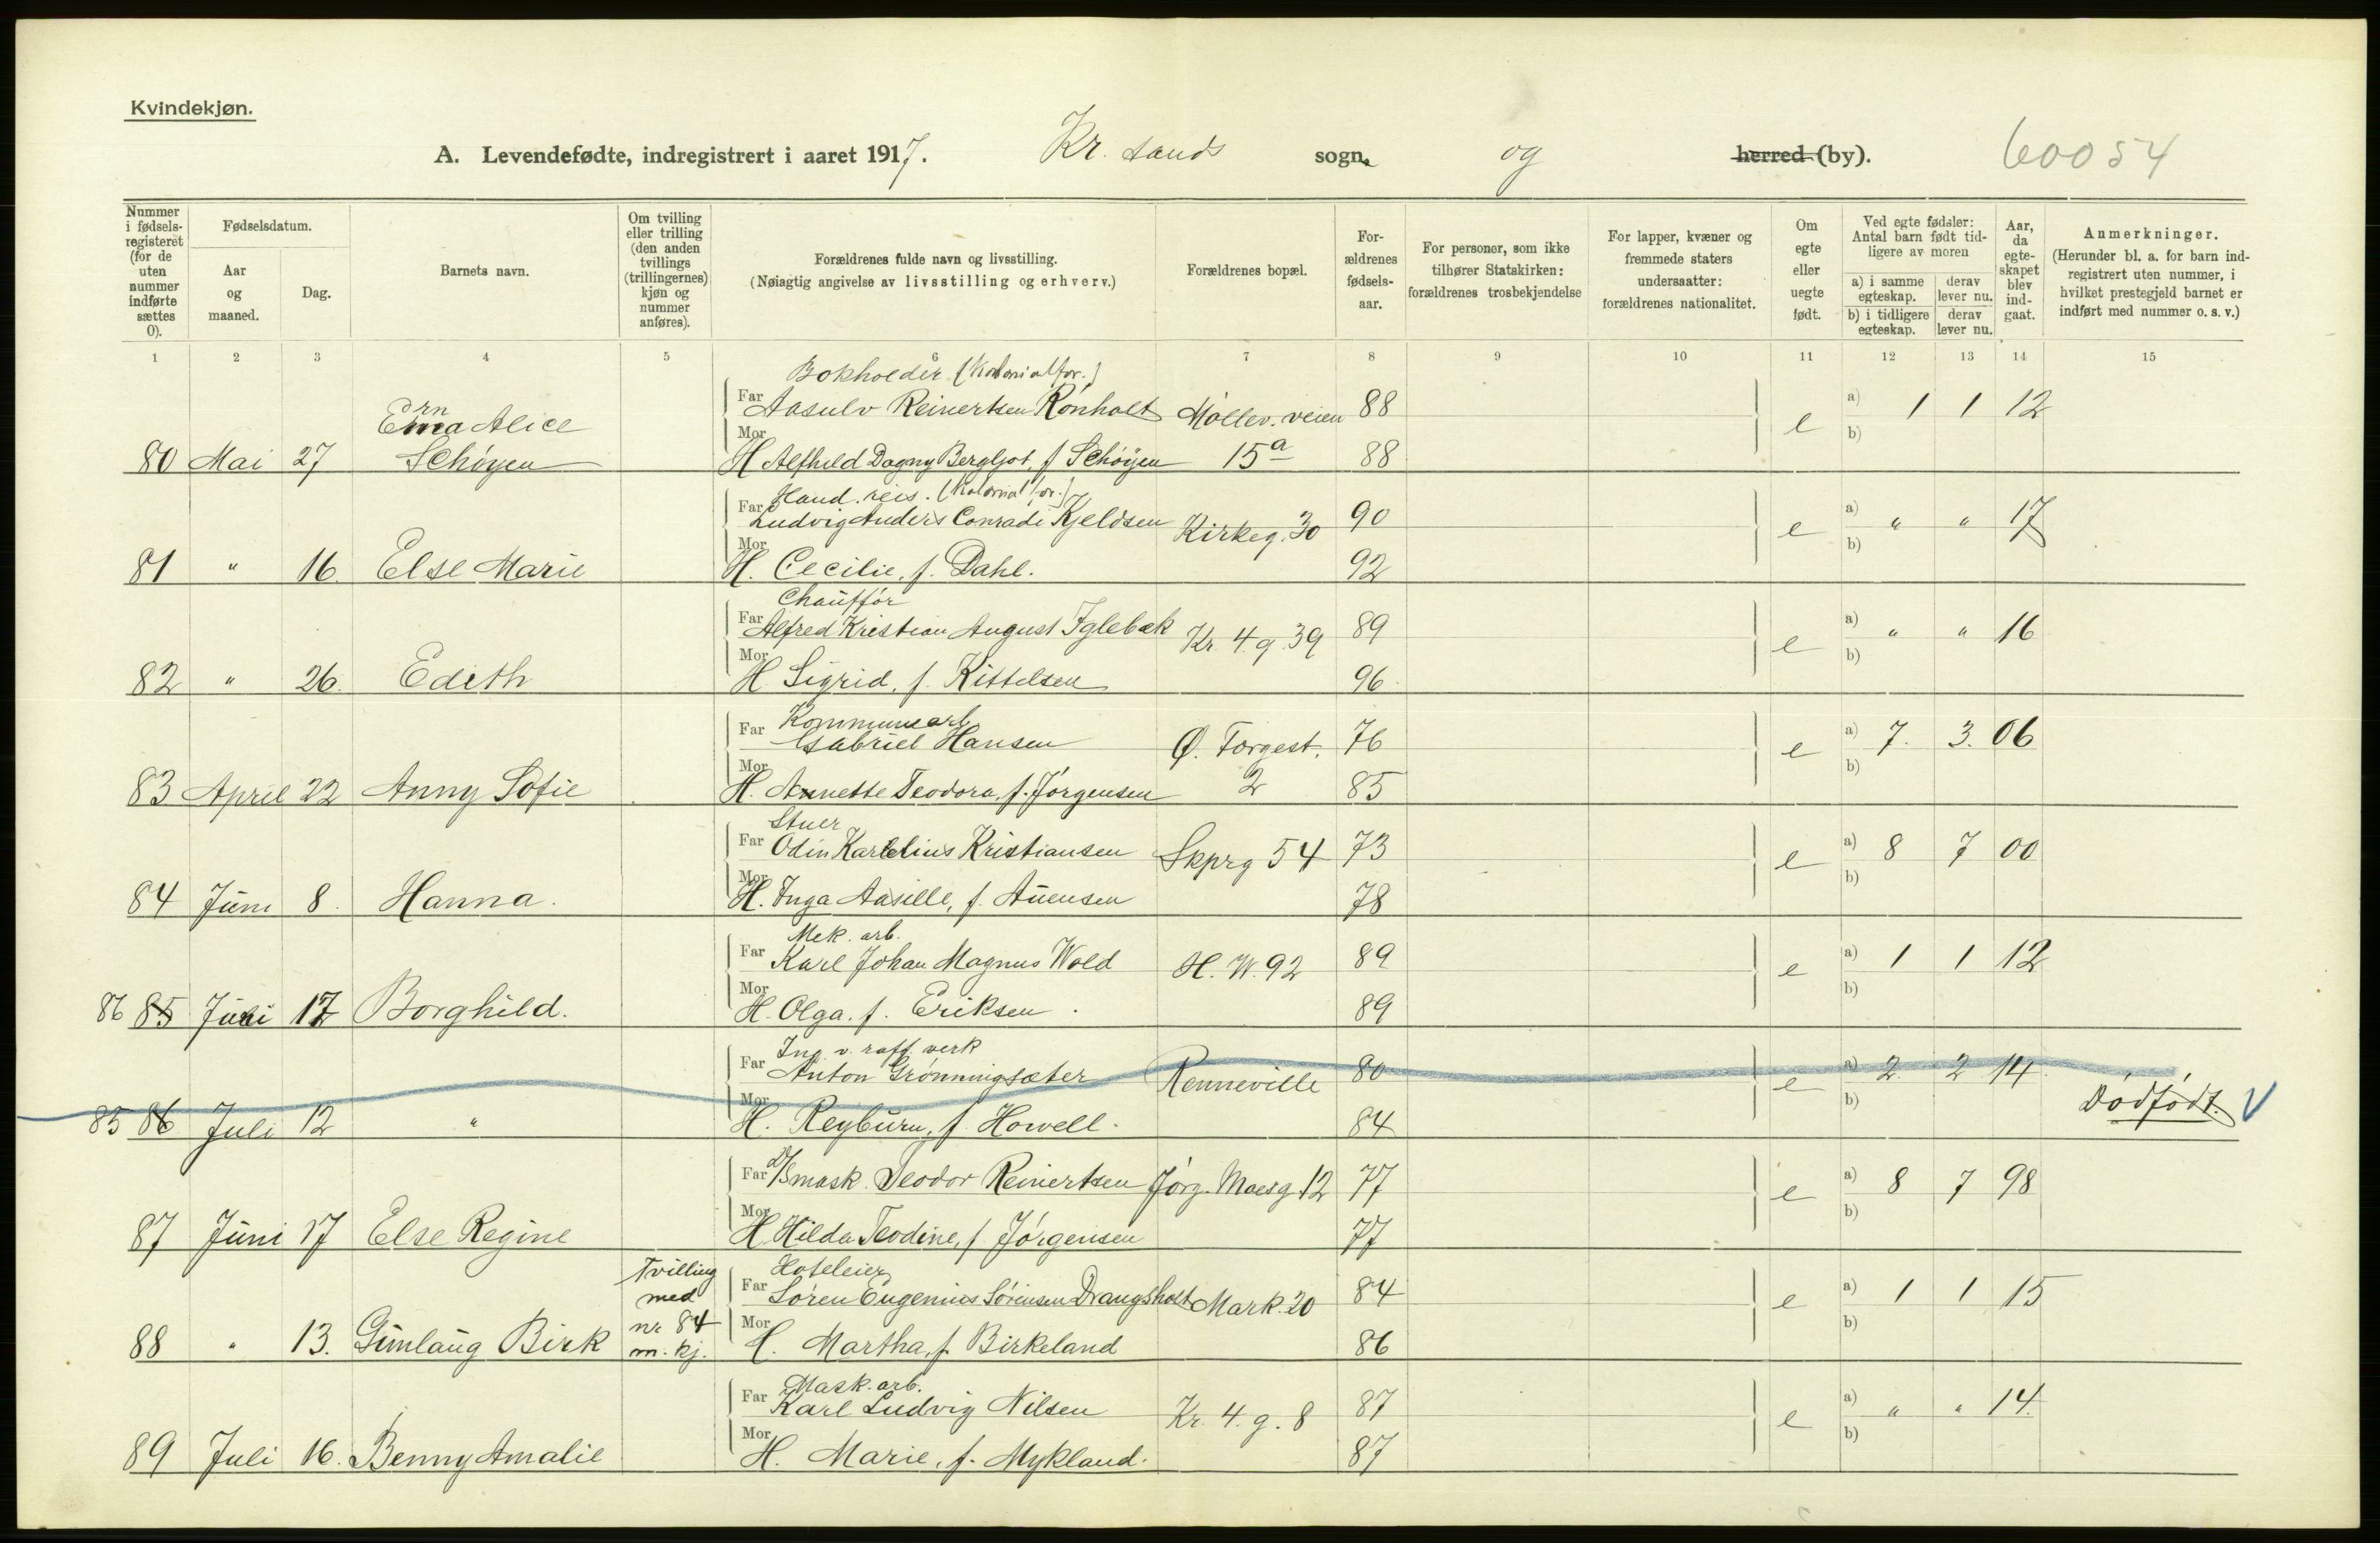 Kvindekjøn.
A. Levendefødte, indregistrert i aaret 1917. Kr. sands sogn. og herred (by). 60054
Nummer i fødselsregisteret (for de uten nummer indførte sættes 0).
Fødselsdatum.
Aar og maaned.
Dag.
Barnets navn.
Om tvilling eller trilling (den anden tvillings (trillingernes) kjøn og nummer anføres).
Forældrenes fulde navn og livsstilling.
(Nøiagtig angivelse av livsstilling og erhverv.)
Forældrenes bopæl.
Forældrenes fødselsaar.
For personer, som ikke tilhører Statskirken: forældrenes trosbekjendelse
For lapper, kvæner og fremmede staters undersaatter: forældrenes nationalitet.
Om egte eller uegte født.
Ved egte fødsler: Antal barn født tidligere av moren
a) i samme egteskap. derav lever nu.
b) i tidligere egteskap. derav lever nu.
Aar, da egteskapet blev indgaat.
Anmerkninger.
(Herunder bl. a. for barn indregistrert uten nummer, i hvilket prestegjeld barnet er indført med nummer o. s. v.)
1 2 3 4 5 6 7 8 9 10 11 12 13 14 15
Bokholder (Kolonialfor.)
Erna Alice Far Aasulv Reinertsen Rønholt Møllev. veien 88 e a) 1 1 12
b)
80 Mai 27 Schøyen Mor H Alfhild Dagny Bergljot, f Schøyen 15a 88
Hand. reis. (Kolonialfor.)
Far Ludvig Anders Conradi Kjeldsen Kirkeg. 30 90 e a) " " 17
b)
81 " 16. Else Marie Mor H. Cecilie, f. Dahl. 92
Chauffør
Far Alfred Kristian August Iglebæk Kr. 4. g. 39 89 e a) " " 16
b)
82 " 26. Edith Mor H Sigrid, f. Kittelsen 96
Kommunearb.
Far Gabriel Hansen Ø. Torgest. 76 e a) 7. 3. 06
b)
83 April 22 Anny Sofie Mor H. Annette Teodora, f. Jørgensen 2 85
Stuer
Far Odin Kartelius Kristiansen Skprg 54 73 e a) 8 7 00
b)
84 Juni 8. Hanna. Mor H. Inga Aasille, f. Auensen 78
Mek. arb.
Far Karl Johan Magnus Wold H. W. 92 89 e a) 1 1 12
b)
86 85 Juni 12 Borghild. Mor H. Olga. f. Eriksen 89
Ing. v. raff. verk
Far Anton Grønningsæter Renneville 80 e a) 2. 2 14
b) Dødfødt. V
85 86 Juli 12 " Mor H. Reyburn, f. Howell. 84
Far D/S mask. Teodor Reinertsen Jørg. Moesg. 12 77 e a) 8 7 98
b)
87 Juni 17 Else Regine Mor H Hilda Teodine, f. Jørgensen 77
Tvilling Hoteleier
med Far Søren Eugenius Sørensen Drangsholt Mark. 20 84 e a) 1 1 15
nr 84 b)
88 " 13. Gunlaug Birk m. kj. Mor H. Martha, f. Birkeland 86
Mask. arb.
Far Karl Ludvig Nilsen Kr. 4. g. 8 87 e a) " " 14.
b)
89 Juli 16. Benny Amalie Mor H. Marie, f. Mykland. 87